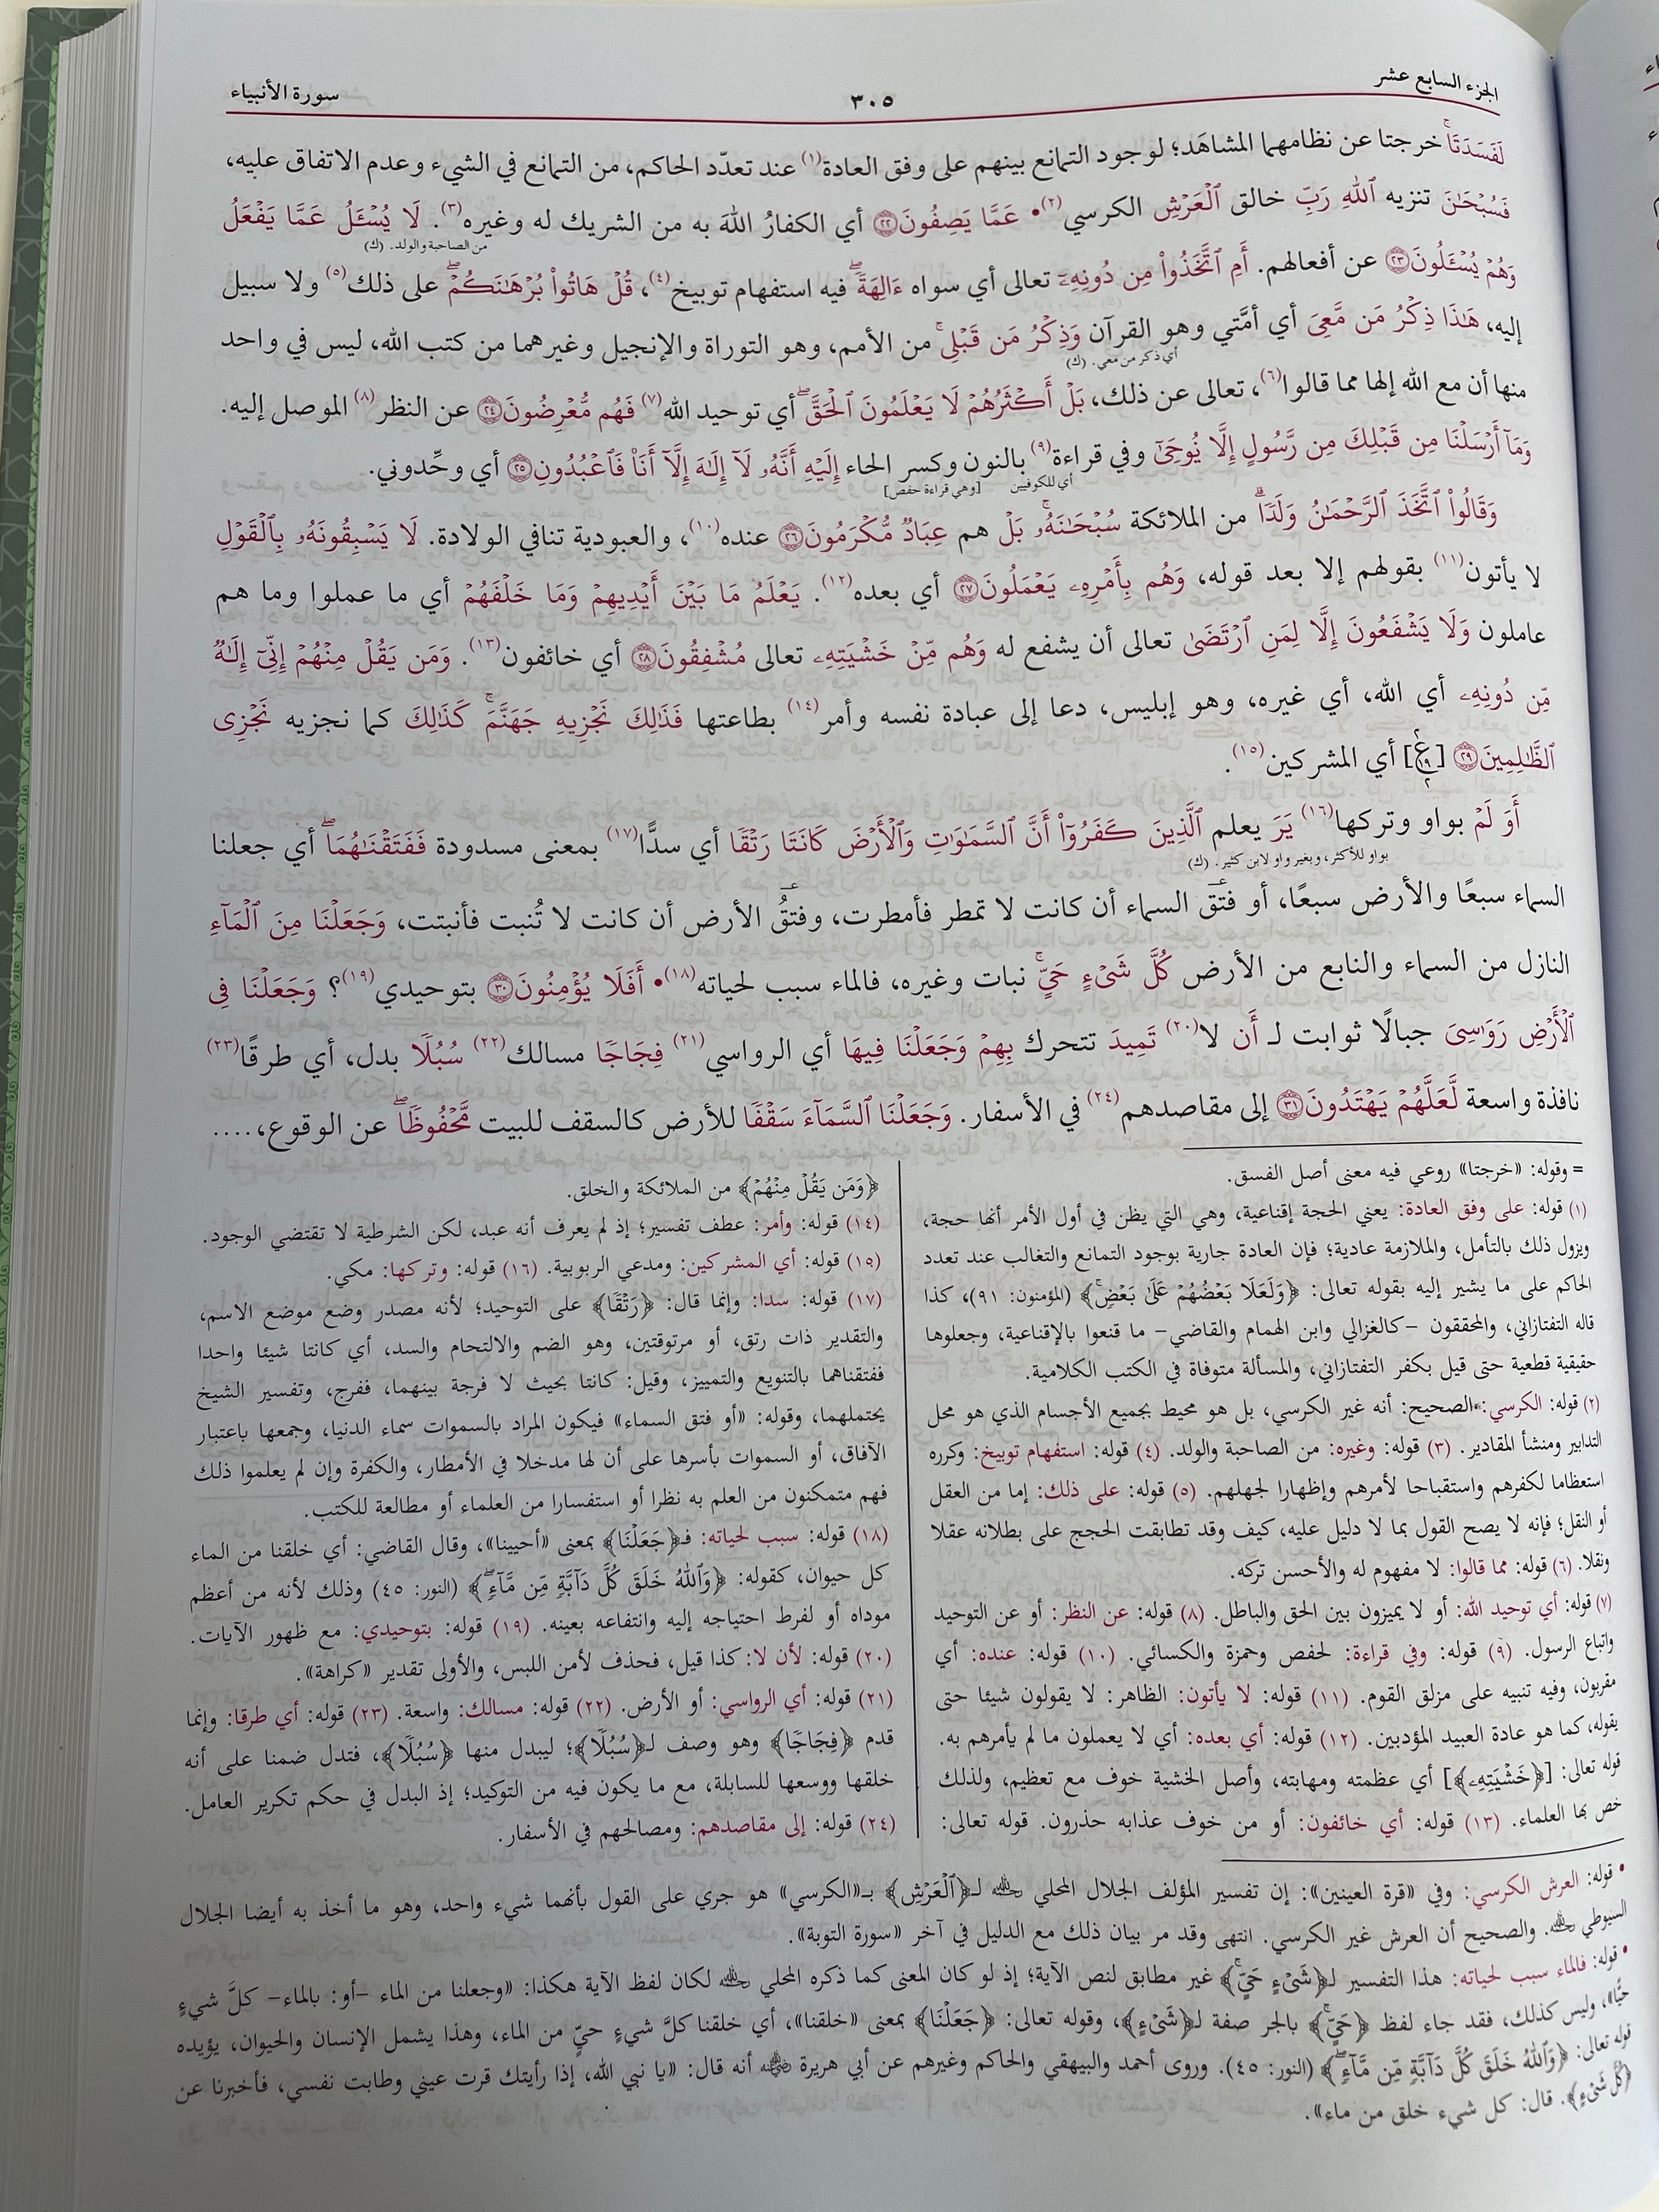 الجزء السابع عشر
٣٠٥
سورة الأنبياء
لَفَسَدَتَا خرجتا عن نظامهما المشاهَد؛ لوجود التمانع بينهم على وفق العادة(١) عند تعدّد الحاكم، من التمانع في الشيء وعدم الاتفاق عليه،
فَسُبْحَٰنَ تنزيه ٱللَّهِ رَبِّ خالق ٱلْعَرْشِ الكرسي(٢)• عَمَّا يَصِفُونَ ٢٢ أي الكفارُ اللهَ به من الشريك له وغيره(٣). لَا يُسْـَٔلُ عَمَّا يَفْعَلُ
من الصاحبة والولد. (ك)
وَهُمْ يُسْـَٔلُونَ ٢٣ عن أفعالهم. أَمِ ٱتَّخَذُوا۟ مِن دُونِهِۦٓ تعالى أي سواه ءَالِهَةً ۖ فيه استفهام توبيخ(٤)، قُلْ هَاتُوا۟ بُرْهَٰنَكُمْ ۖ على ذلك(٥) ولا سبيل
إليه، هَٰذَا ذِكْرُ مَن مَّعِىَ أي أمَّتي وهو القرآن وَذِكْرُ مَن قَبْلِى ۚ من الأمم، وهو التوراة والإنجيل وغيرهما من كتب الله، ليس في واحد
أي ذكر من معي. (ك)
منها أن مع الله إلها مما قالوا(٦)، تعالى عن ذلك، بَلْ أَكْثَرُهُمْ لَا يَعْلَمُونَ ٱلْحَقَّ ۖ أي توحيد الله(٧) فَهُم مُّعْرِضُونَ ٢٤ عن النظر(٨) الموصل إليه.
وَمَآ أَرْسَلْنَا مِن قَبْلِكَ مِن رَّسُولٍ إِلَّا يُوحَىٰٓ وفي قراءة(٩) بالنون وكسر الحاء إِلَيْهِ أَنَّهُۥ لَآ إِلَٰهَ إِلَّآ أَنَا۠ فَٱعْبُدُونِ ٢٥ أي وحِّدوني.
أي للكوفيين
[وهي قراءة حفص]
وَقَالُوا۟ ٱتَّخَذَ ٱلرَّحْمَٰنُ وَلَدًا ۗ من الملائكة سُبْحَٰنَهُۥ ۚ بَلْ هم عِبَادٌ مُّكْرَمُونَ ٢٦ عنده(١٠)، والعبودية تنافي الولادة. لَا يَسْبِقُونَهُۥ بِٱلْقَوْلِ
لا يأتون(١١) بقولهم إلا بعد قوله، وَهُم بِأَمْرِهِۦ يَعْمَلُونَ ٢٧ أي بعده(١٢). يَعْلَمُ مَا بَيْنَ أَيْدِيهِمْ وَمَا خَلْفَهُمْ أي ما عملوا وما هم
عاملون وَلَا يَشْفَعُونَ إِلَّا لِمَنِ ٱرْتَضَىٰ تعالى أن يشفع له وَهُم مِّنْ خَشْيَتِهِۦ تعالى مُشْفِقُونَ ٢٨ أي خائفون(١٣). وَمَن يَقُلْ مِنْهُمْ إِنِّىٓ إِلَٰهٌ
مِّن دُونِهِۦ أي الله، أي غيره، وهو إبليس، دعا إلى عبادة نفسه وأمر(١٤) بطاعتها فَذَٰلِكَ نَجْزِيهِ جَهَنَّمَ ۚ كَذَٰلِكَ كما نجزيه نَجْزِى
ٱلظَّٰلِمِينَ ٢٩ [٢ ع ١٩ ٢] أي المشركين(١٥).
أَوَ لَمْ بواو وتركها(١٦) يَرَ يعلم ٱلَّذِينَ كَفَرُوٓا۟ أَنَّ ٱلسَّمَٰوَٰتِ وَٱلْأَرْضَ كَانَتَا رَتْقًا أي سدًّا(١٧) بمعنى مسدودة فَفَتَقْنَٰهُمَا ۖ أي جعلنا
بواو للأكثر، وبغير واو لابن كثير. (ك)
السماء سبعًا والأرض سبعًا، أو فتق السماء أن كانت لا تمطر فأمطرت، وفتقُ الأرض أن كانت لا تُنبت فأنبتت، وَجَعَلْنَا مِنَ ٱلْمَآءِ
النازل من السماء والنابع من الأرض كُلَّ شَىْءٍ حَىٍّ ۚ نبات وغيره، فالماء سبب لحياته(١٨)• أَفَلَا يُؤْمِنُونَ ٣٠ بتوحيدي(١٩)؟ وَجَعَلْنَا فِى
ٱلْأَرْضِ رَوَٰسِىَ جبالًا ثوابت لـ أَن لا(٢٠) تَمِيدَ تتحرك بِهِمْ وَجَعَلْنَا فِيهَا أي الرواسي(٢١) فِجَاجًا مسالك(٢٢) سُبُلًا بدل، أي طرقًا(٢٣)
نافذة واسعة لَّعَلَّهُمْ يَهْتَدُونَ ٣١ إلى مقاصدهم(٢٤) في الأسفار. وَجَعَلْنَا ٱلسَّمَآءَ سَقْفًا للأرض كالسقف للبيت مَّحْفُوظًا ۖ عن الوقوع،....
= وقوله: «خرجتا» روعي فيه معنى أصل الفسق.
(١) قوله: على وفق العادة: يعني الحجة إقناعية، وهي التي يظن في أول الأمر أنها حجة،
ويزول ذلك بالتأمل، والملازمة عادية؛ فإن العادة جارية بوجود التمانع والتغالب عند تعدد
الحاكم على ما يشير إليه بقوله تعالى: ﴿وَلَعَلَا بَعْضُهُمْ عَلَىٰ بَعْضٍ ۚ﴾ (المؤمنون: ٩١)، كذا
قاله التفتازاني، والمحققون –كالغزالي وابن الهمام والقاضي– ما قنعوا بالإقناعية، وجعلوها
حقيقية قطعية حتى قيل بكفر التفتازاني، والمسألة متوفاة في الكتب الكلامية.
(٢) قوله: الكرسي: الصحيح: أنه غير الكرسي، بل هو محيط بجميع الأجسام الذي هو محل
التدابير ومنشأ المقادير. (٣) قوله: وغيره: من الصاحبة والولد. (٤) قوله: استفهام توبيخ: وكرره
استعظاما لكفرهم واستقباحا لأمرهم وإظهارا لجهلهم. (٥) قوله: على ذلك: إما من العقل
أو النقل؛ فإنه لا يصح القول بما لا دليل عليه، كيف وقد تطابقت الحجج على بطلانه عقلا
ونقلا. (٦) قوله: مما قالوا: لا مفهوم له والأحسن تركه.
(٧) قوله: أي توحيد الله: أو لا يميزون بين الحق والباطل. (٨) قوله: عن النظر: أو عن التوحيد
واتباع الرسول. (٩) قوله: وفي قراءة: لحفص وحمزة والكسائي. (١٠) قوله: عنده: أي
مقربون، وفيه تنبيه على مزلق القوم. (١١) قوله: لا يأتون: الظاهر: لا يقولون شيئا حتى
يقوله، كما هو عادة العبيد المؤدبين. (١٢) قوله: أي بعده: أي لا يعملون ما لم يأمرهم به.
قوله تعالى: [﴿خَشْيَتِهِۦ﴾] أي عظمته ومهابته، وأصل الخشية خوف مع تعظيم، ولذلك
خص بها العلماء. (١٣) قوله: أي خائفون: أو من خوف عذابه حذرون. قوله تعالى:
﴿وَمَن يَقُلْ مِنْهُمْ﴾ من الملائكة والخلق.
(١٤) قوله: وأمر: عطف تفسير؛ إذ لم يعرف أنه عبد، لكن الشرطية لا تقتضي الوجود.
(١٥) قوله: أي المشركين: ومدعي الربوبية. (١٦) قوله: وتركها: مكي.
(١٧) قوله: سدا: وإنما قال: ﴿رَتْقًا﴾ على التوحيد؛ لأنه مصدر وضع موضع الاسم،
والتقدير ذات رتق، أو مرتوقتين، وهو الضم والالتحام والسد، أي كانتا شيئا واحدا
ففتقناهما بالتنويع والتمييز، وقيل: كانتا بحيث لا فرجة بينهما، ففرج، وتفسير الشيخ
يحتملهما، وقوله: «أو فتق السماء» فيكون المراد بالسموات سماء الدنيا، وجمعها باعتبار
الآفاق، أو السموات بأسرها على أن لها مدخلا في الأمطار، والكفرة وإن لم يعلموا ذلك
فهم متمكنون من العلم به نظرا أو استفسارا من العلماء أو مطالعة للكتب.
(١٨) قوله: سبب لحياته: فـ﴿جَعَلْنَا﴾ بمعنى «أحيينا»، وقال القاضي: أي خلقنا من الماء
كل حيوان، كقوله: ﴿وَٱللَّهُ خَلَقَ كُلَّ دَآبَّةٍ مِّن مَّآءٍ ۖ﴾ (النور: ٤٥) وذلك لأنه من أعظم
موداه أو لفرط احتياجه إليه وانتفاعه بعينه. (١٩) قوله: بتوحيدي: مع ظهور الآيات.
(٢٠) قوله: لأن لا: كذا قيل، فحذف لأمن اللبس، والأولى تقدير «كراهة».
(٢١) قوله: أي الرواسي: أو الأرض. (٢٢) قوله: مسالك: واسعة. (٢٣) قوله: أي طرقا: وإنما
قدم ﴿فِجَاجًا﴾ وهو وصف لـ﴿سُبُلًا﴾؛ ليبدل منها ﴿سُبُلًا﴾، فتدل ضمنا على أنه
خلقها ووسعها للسابلة، مع ما يكون فيه من التوكيد؛ إذ البدل في حكم تكرير العامل.
(٢٤) قوله: إلى مقاصدهم: ومصالحهم في الأسفار.
• قوله: العرش الكرسي: وفي «قرة العينين»: إن تفسير المؤلف الجلال المحلي رحمه الله لـ﴿ٱلْعَرْشِ﴾ بـ«الكرسي» هو جري على القول بأنهما شيء واحد، وهو ما أخذ به أيضا الجلال
السيوطي رحمه الله. والصحيح أن العرش غير الكرسي. انتهى وقد مر بيان ذلك مع الدليل في آخر «سورة التوبة».
• قوله: فالماء سبب لحياته: هذا التفسير لـ﴿شَىْءٍ حَىٍّ ۚ﴾ غير مطابق لنص الآية؛ إذ لو كان المعنى كما ذكره المحلي رحمه الله لكان لفظ الآية هكذا: «وجعلنا من الماء –أو: بالماء– كلَّ شيءٍ
حيًّا»، وليس كذلك، فقد جاء لفظ ﴿حَىٍّ ۚ﴾ بالجر صفة لـ﴿شَىْءٍ﴾، وقوله تعالى: ﴿جَعَلْنَا﴾ بمعنى «خلقنا»، أي خلقنا كلَّ شيءٍ حيٍّ من الماء، وهذا يشمل الإنسان والحيوان، يؤيده
قوله تعالى: ﴿وَٱللَّهُ خَلَقَ كُلَّ دَآبَّةٍ مِّن مَّآءٍ ۖ﴾ (النور: ٤٥). وروى أحمد والبيهقي والحاكم وغيرهم عن أبي هريرة رضي الله عنه أنه قال: «يا نبي الله، إذا رأيتك قرت عيني وطابت نفسي، فأخبرنا عن
﴿كُلَّ شَىْءٍ﴾. قال: كل شيء خلق من ماء».